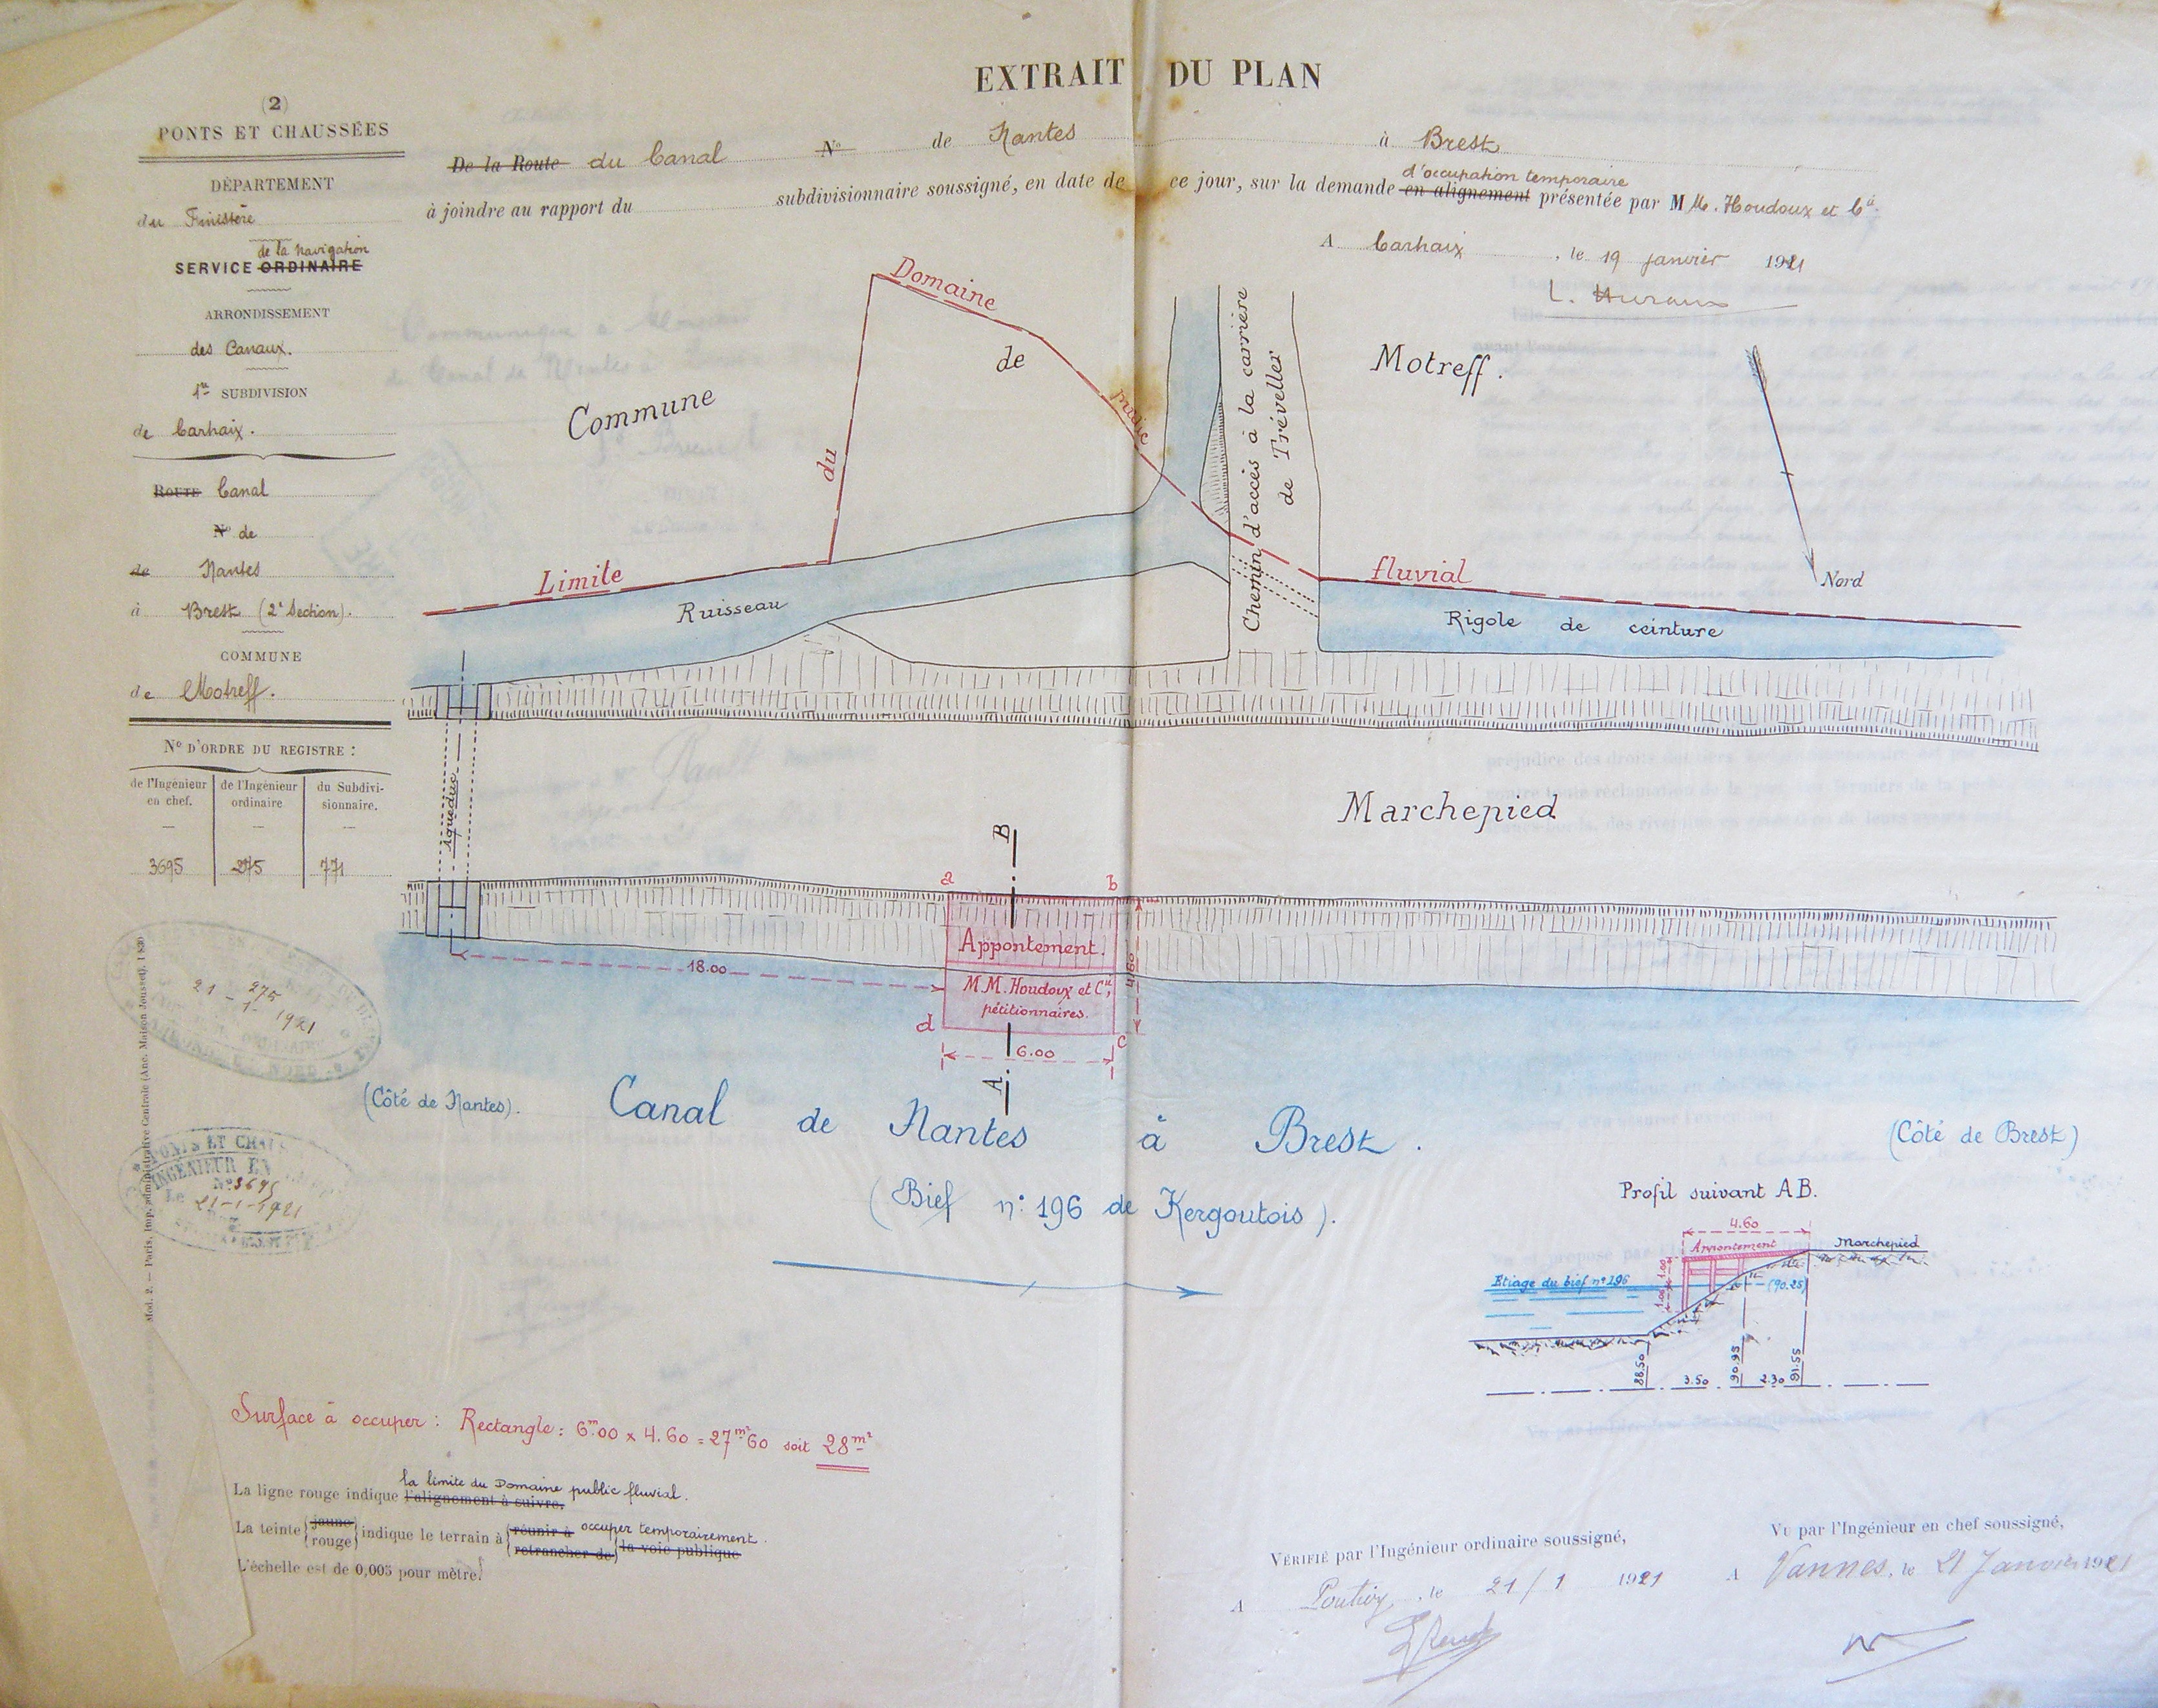 EXTRAIT DU PLAN
(2)
PONTS ET CHAUSSÉES
DÉPARTEMENT
du Finistère
de la navigation
SERVICE ORDINAIRE
ARRONDISSEMENT
des Canaux.
1re SUBDIVISION
de Carhaix.
ROUTE Canal
No de
de Nantes
à Brest (2e Section).
COMMUNE
de Motreff.
No D'ORDRE DU REGISTRE :
de l'Ingénieur en chef.
de l'Ingénieur ordinaire
du Subdivi-sionnaire.
3695 275 771
De la Route du Canal No de Nantes à Brest
d'occupation temporaire
à joindre au rapport du subdivisionnaire soussigné, en date de ce jour, sur la demande en alignement présentée par M M. Houdoux et Cie.
A Carhaix, le 19 janvier 1921
Domaine
de
Commune
Motreff.
public
du
Chemin d'accès à la carrière
de Tréveller
Limite
fluvial
Nord
Ruisseau
Rigole de ceinture
Aqueduc
Marchepied
B
a
b
Appontement.
18.00
4.60
M.M. Houdoux et Cie,
pétitionnaires.
d
c
6.00
A
275
21 - 1 - 1921
(Côté de Nantes).
Canal de Nantes à Brest.
(Côté de Brest)
(Bief no 196 de Kergoutois).
PONTS ET CHAU
INGÉNIEUR EN
No 3695
Le 21-1-1921
Mod. 2. — Paris, Imp. administrative Centrale (Anc. Maison Jousset).
Profil suivant A B.
4.60
Appontement
Marchepied
Etiage du bief no 196
1.00
1.00
(90.25)
88.50
3.50
90.95
2.30
91.55
Surface à occuper : Rectangle : 6m00 x 4.60 = 27m²60 soit 28m²
la limite du Domaine public fluvial.
La ligne rouge indique l'alignement à suivre.
La teinte jaune rouge indique le terrain à réunir à retrancher de occuper temporairement. la voie publique
L'échelle est de 0,005 pour mètre.
VÉRIFIÉ par l'Ingénieur ordinaire soussigné,
A Pontivy, le 21/1 1921
VU par l'Ingénieur en chef soussigné,
A Vannes, le 21 Janvier 1921